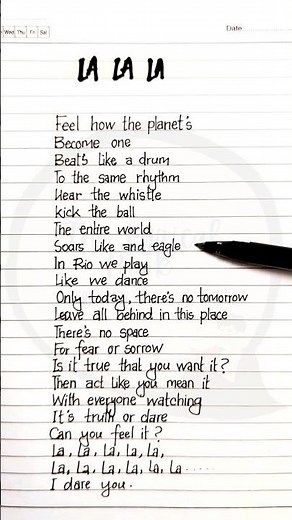 Wed Thu Fri Sat
Date
LA LA LA
Feel how the planet's
Become one
Beats like a drum
To the same rhythm
Hear the whistle
kick the ball
The entire world
Soars like and eagle
In Rio we play
Like we dance
Only today, there's no tomorrow
Leave all behind in this place
There's no space
For fear or sorrow
Is it true that you want it?
Then act like you mean it
With everyone watching
It's truth or dare
Can you feel it?
La, La, La, La, La,
La, La, La, La, La, La .....
I dare you.